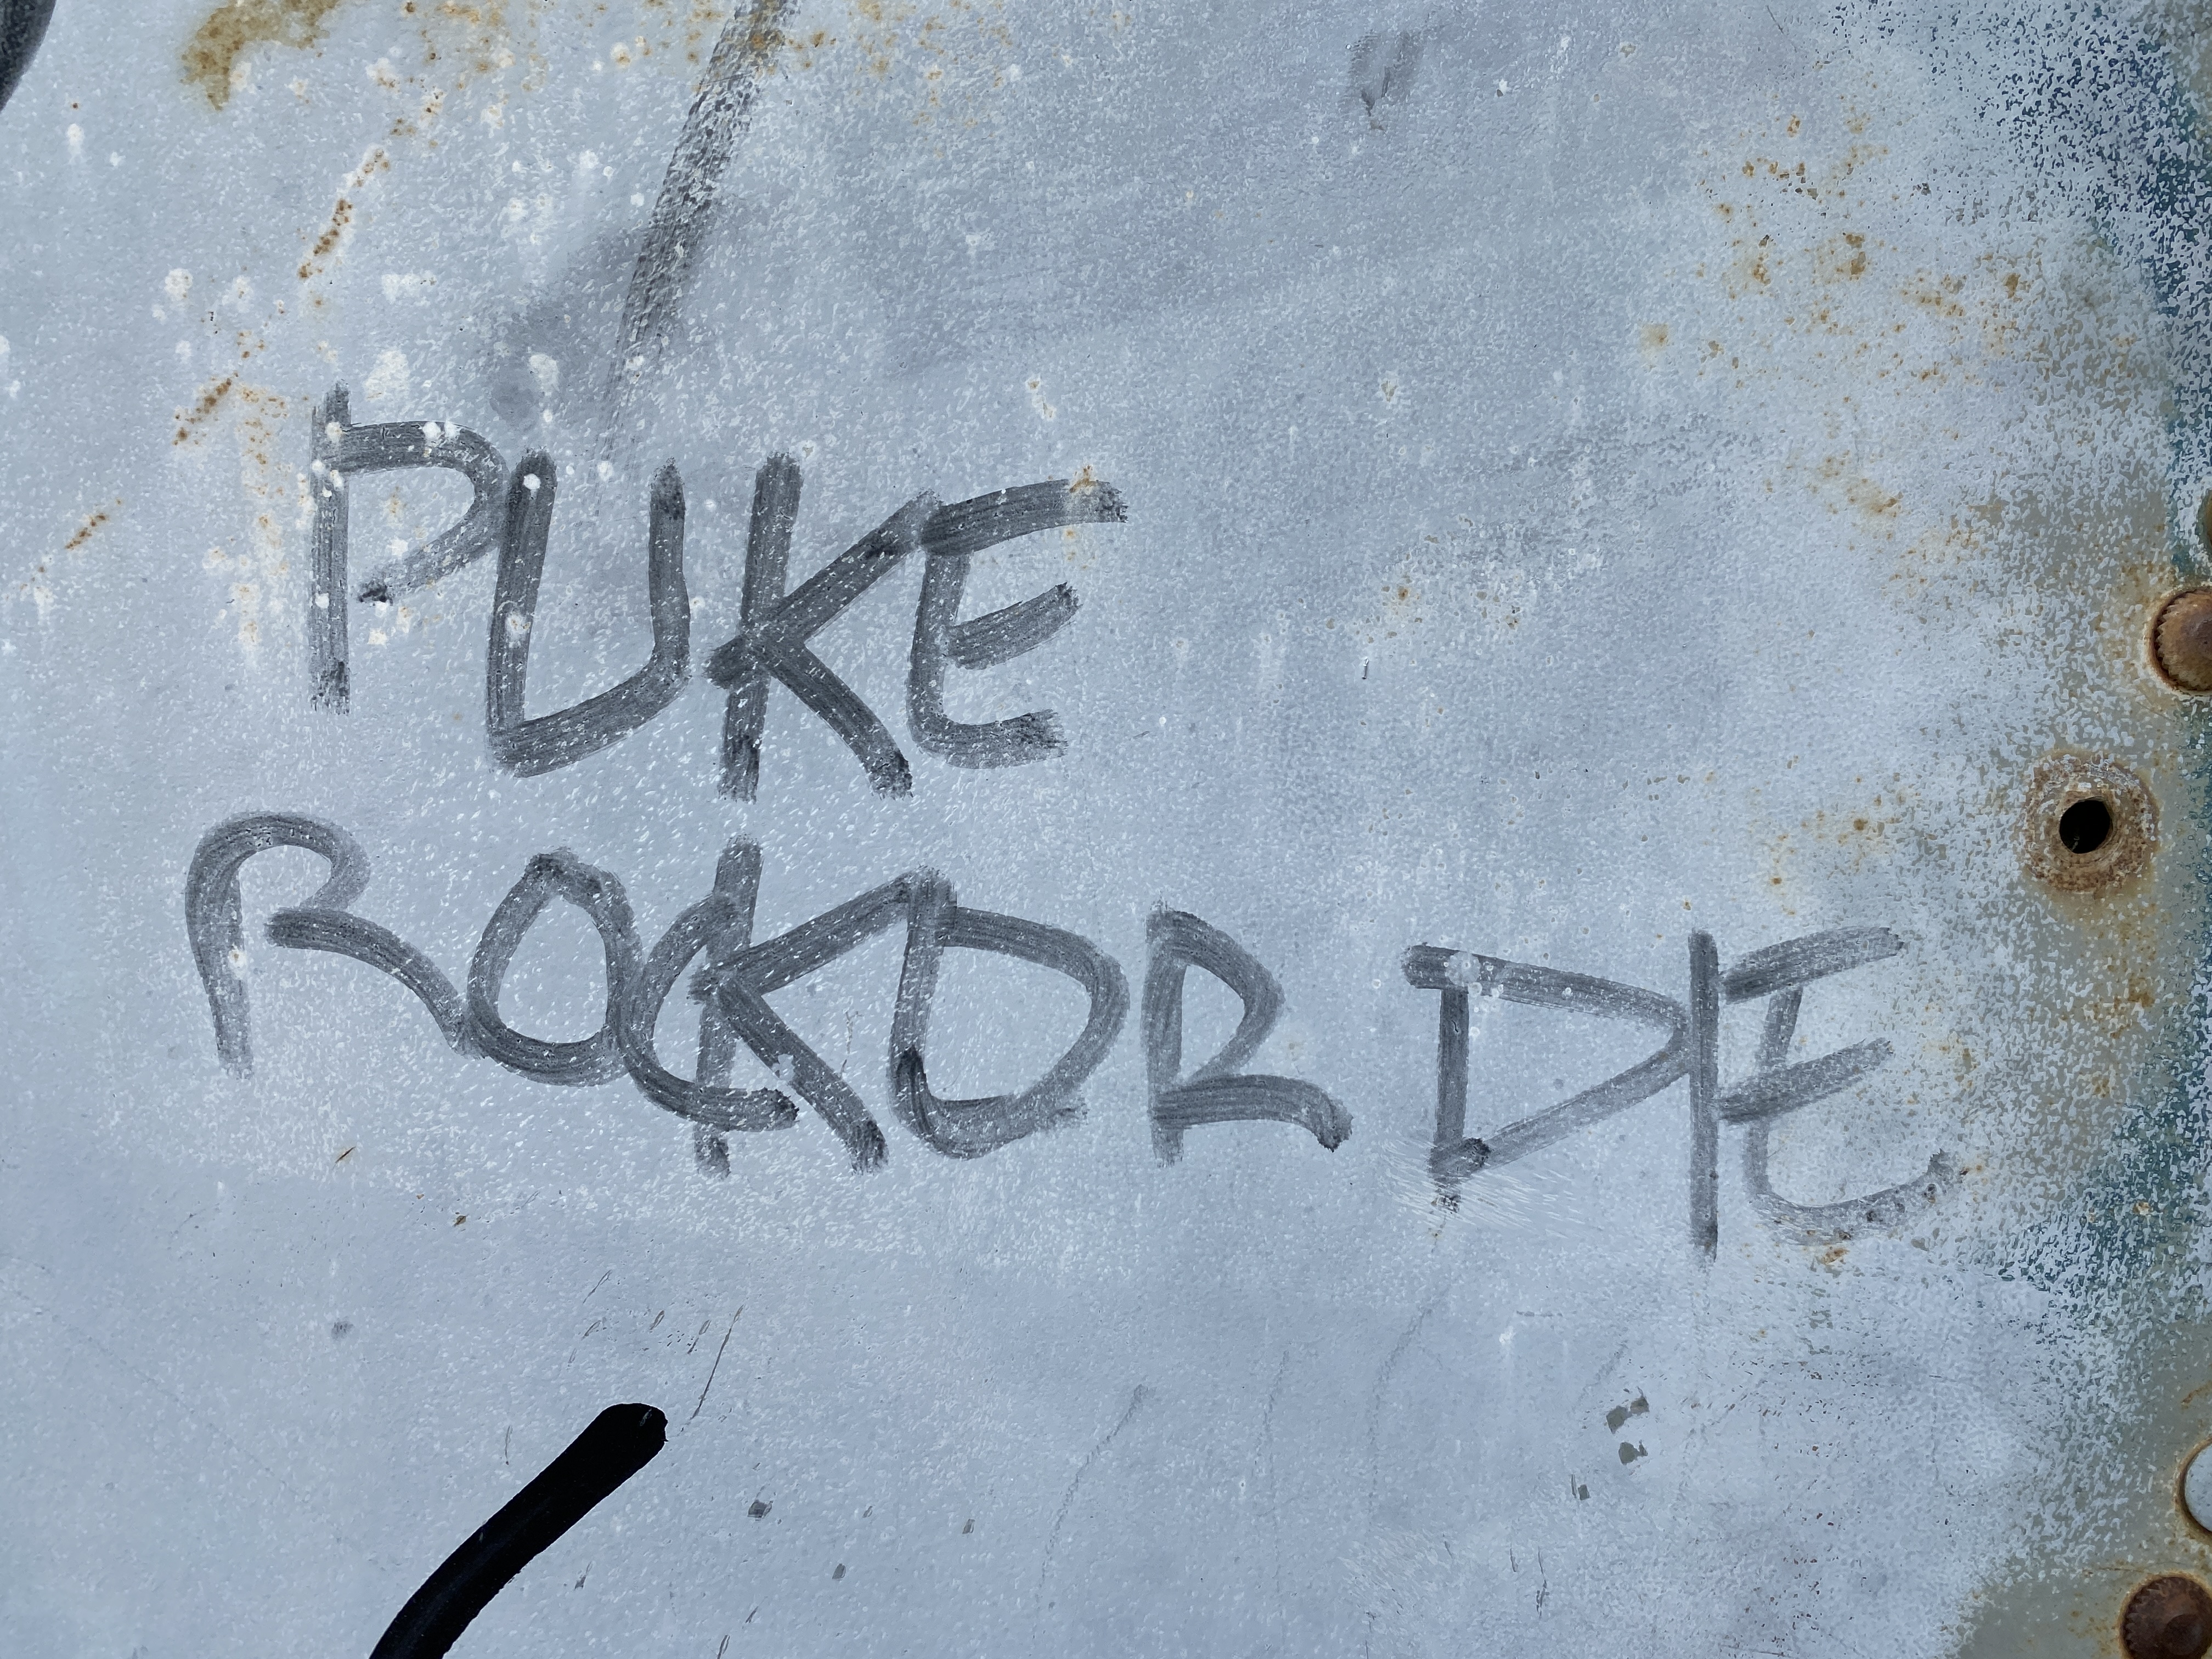 PUKE
ROCK OR DIE